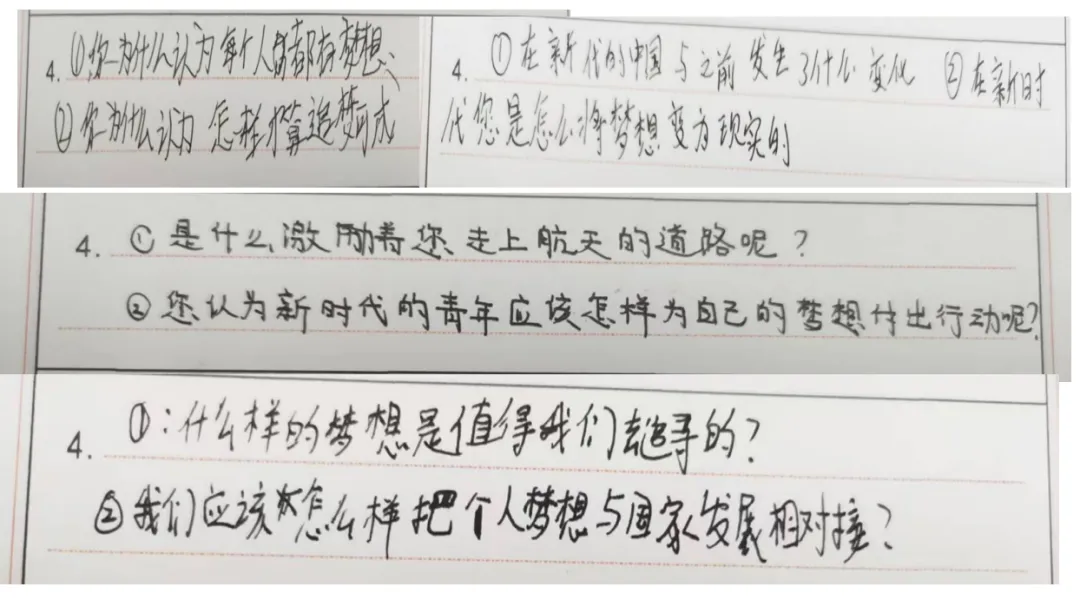 4. ①你为什么认为每个人都有梦想、
②你为什么认为怎样才算追梦成
4. ①在新代的中国与之前发生了什么变化 ②在新时
代您是怎么将梦想变为现实的
4. ①是什么激励着您走上航天的道路呢?
②您认为新时代的青年应该怎样为自己的梦想付出行动呢?
4. ①:什么样的梦想是值得我们去追寻的?
②我们应该怎么样把个人梦想与国家发展相对接?